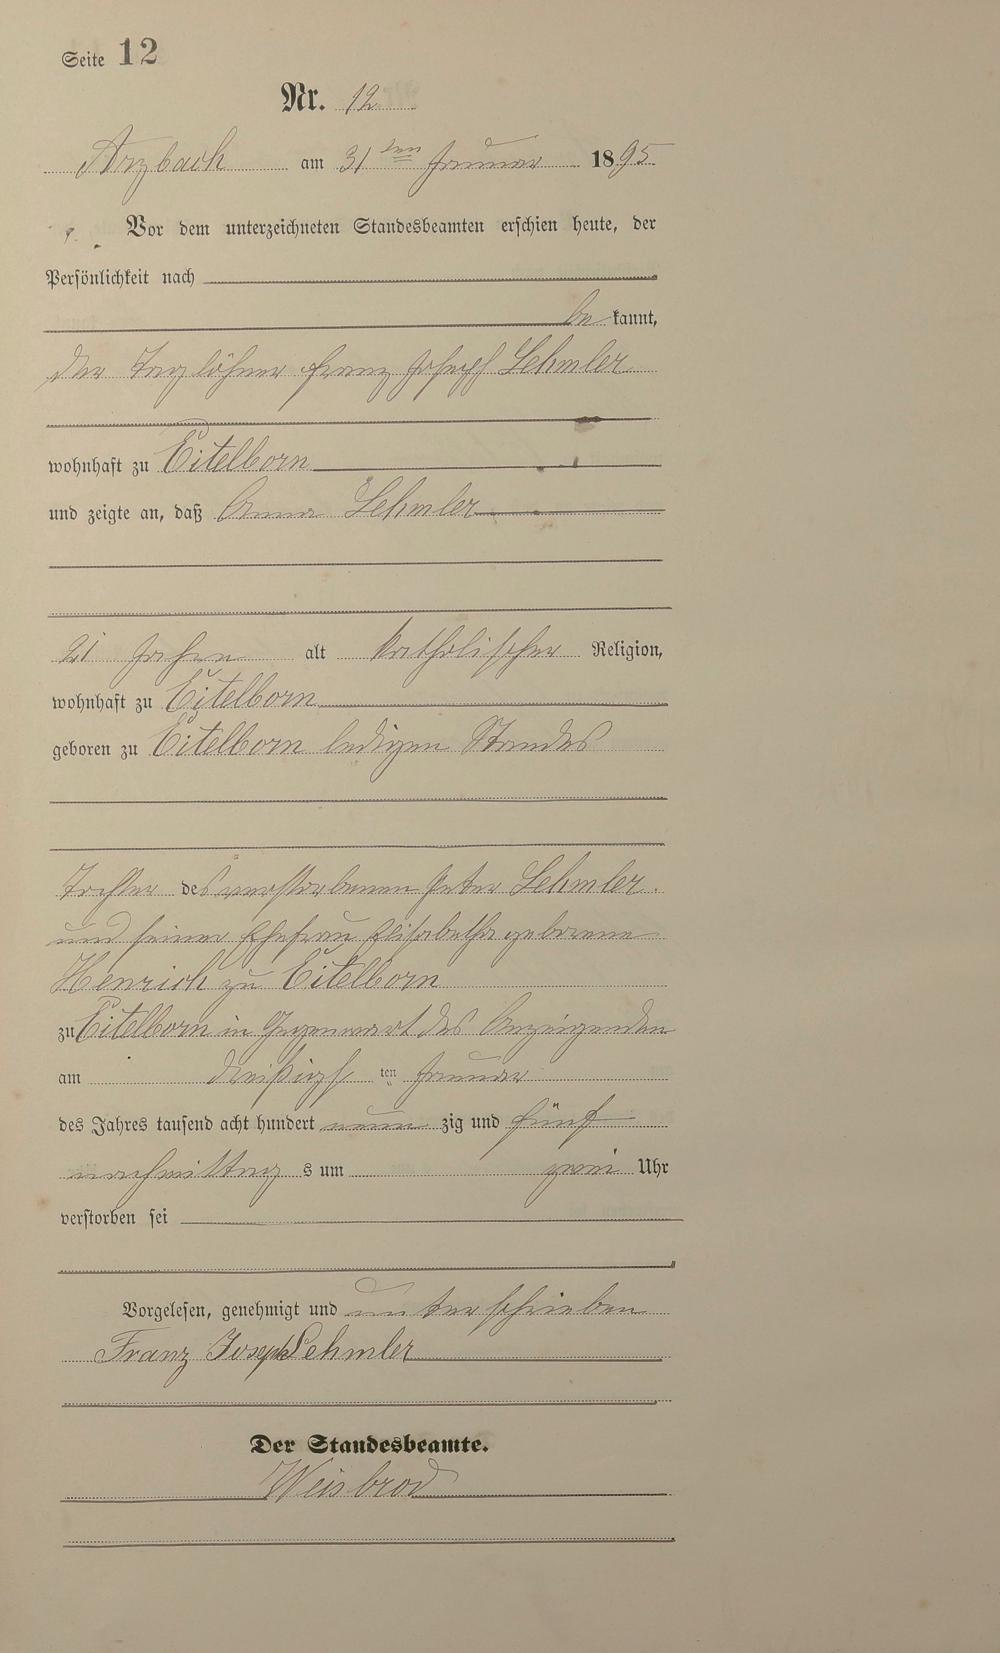 Seite 12
Nr. 12
Arzbach am 31ten Januar 1895
Vor dem unterzeichneten Standesbeamten erschien heute, der
Persönlichkeit nach
be kannt,
der Taglöhner Franz Joseph Lehmler
wohnhaft zu Eitelborn
und zeigte an, daß Anna Lehmler
21 Jahre alt katholischer Religion,
wohnhaft zu Eitelborn
geboren zu Eitelborn ledigen Standes
Tochter des verstorbenen Peter Lehmler
und seiner Ehefrau Elisabetha geborene
Henrich zu Eitelborn
zu Eitelborn in Gegenwart des Anzeigenden
am dreißigs ten Januar
des Jahres tausend acht hundert neun zig und fünf
nachmittag s um zwei Uhr
verstorben sei
Vorgelesen, genehmigt und unterschrieben
Franz Joseph Lehmler
Der Standesbeamte.
Weisbrod